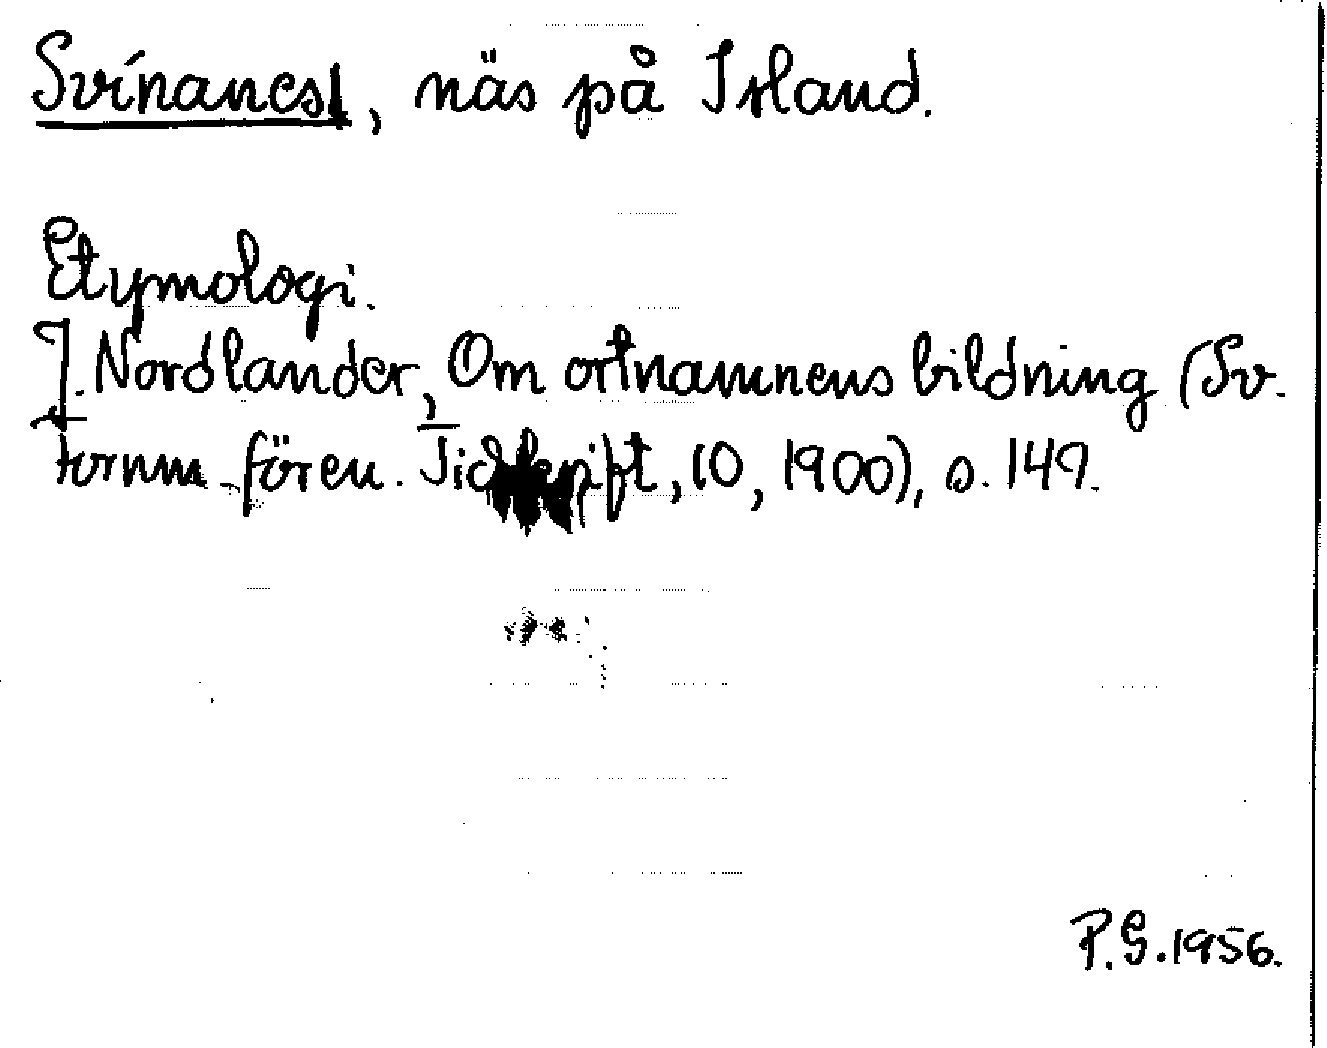 Svínanes, näs på Island.
Etymologi.
J. Nordlander, Om ortnamnens bildning (Sv.
fornm. fören. Tidskrift, 10, 1900), s. 149.
P.G.1956.